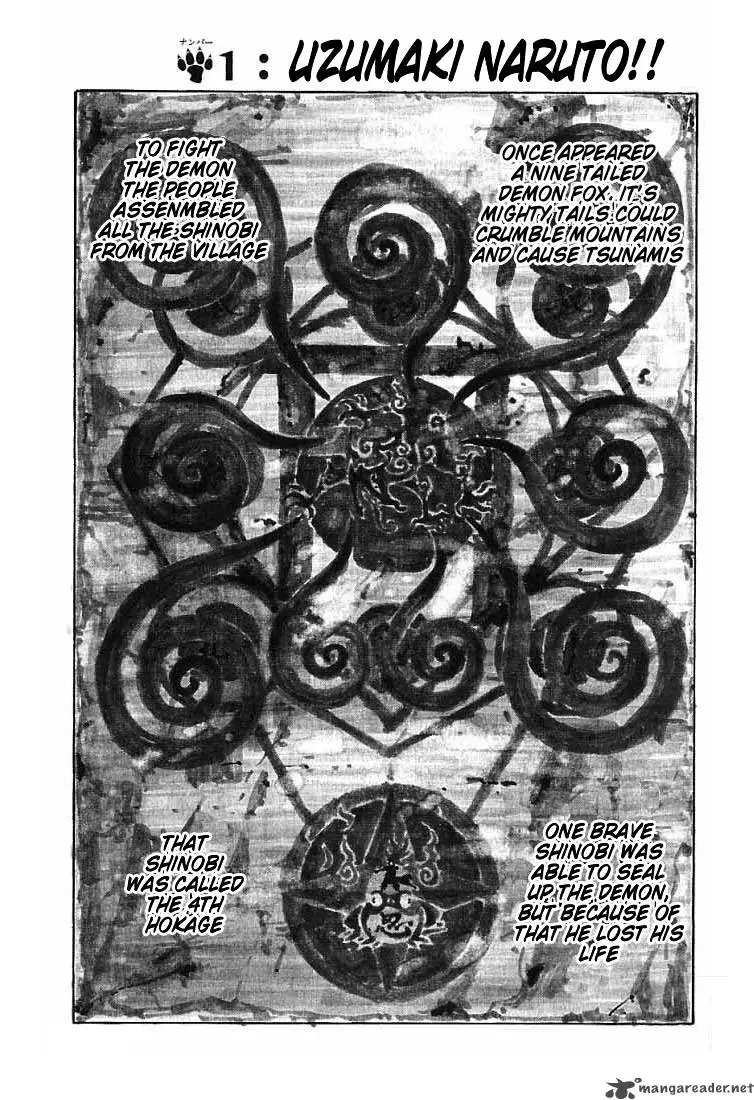 ナンバー
1 : UZUMAKI NARUTO!!
ONCE APPEARED
A NINE TAILED
DEMON FOX. IT'S
MIGHTY TAILS COULD
CRUMBLE MOUNTAINS
AND CAUSE TSUNAMIS
TO FIGHT
THE DEMON
THE PEOPLE
ASSENMBLED
ALL THE SHINOBI
FROM THE VILLAGE
ONE BRAVE
SHINOBI WAS
ABLE TO SEAL
UP THE DEMON,
BUT BECAUSE OF
THAT HE LOST HIS
LIFE
THAT
SHINOBI
WAS CALLED
THE 4TH
HOKAGE
mangareader.net